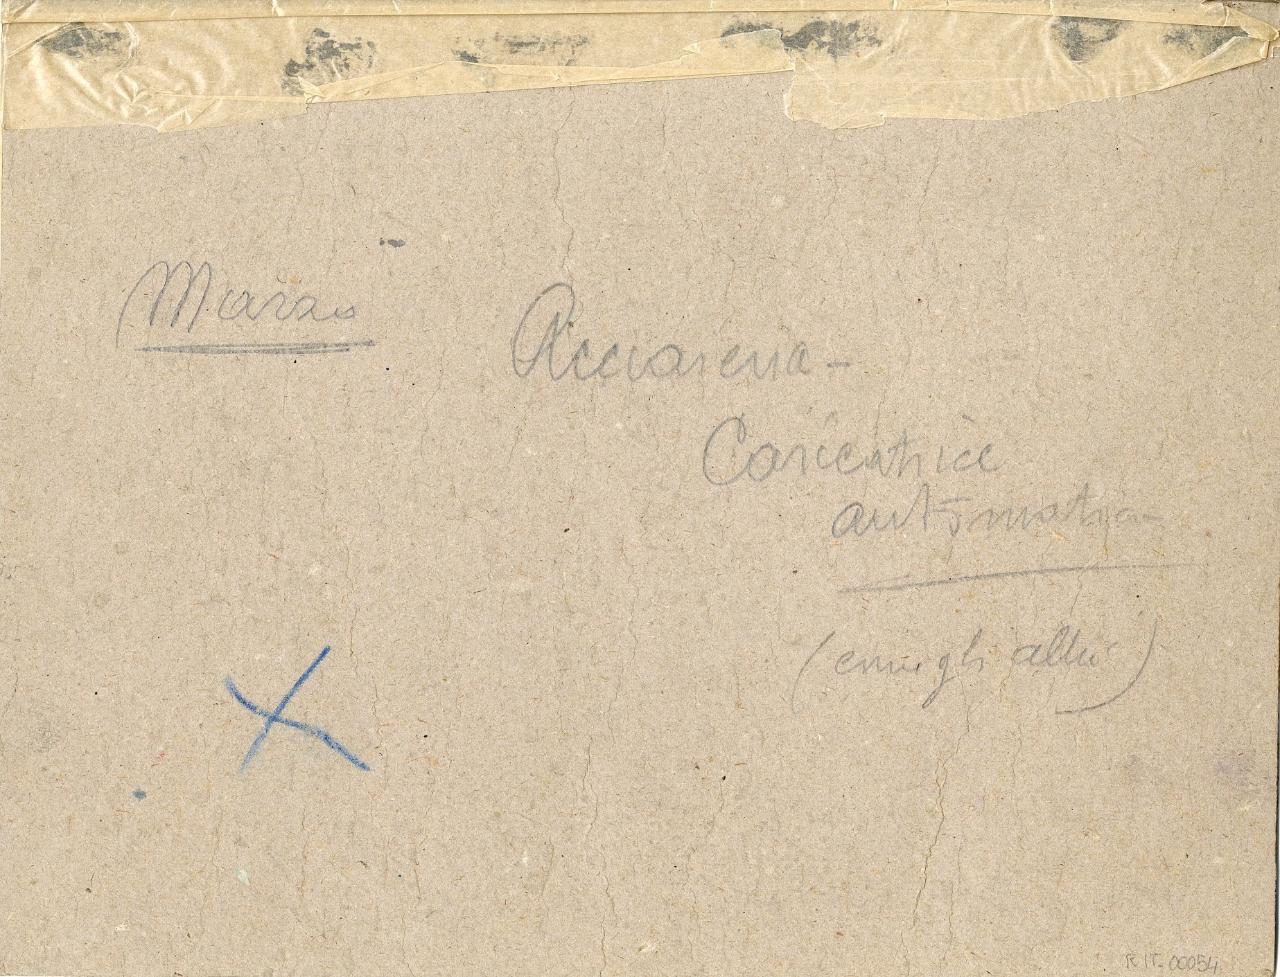 Marzo
Acciaieria -
Caricatrice
automatica -
(come gli altri)
RIT-00054